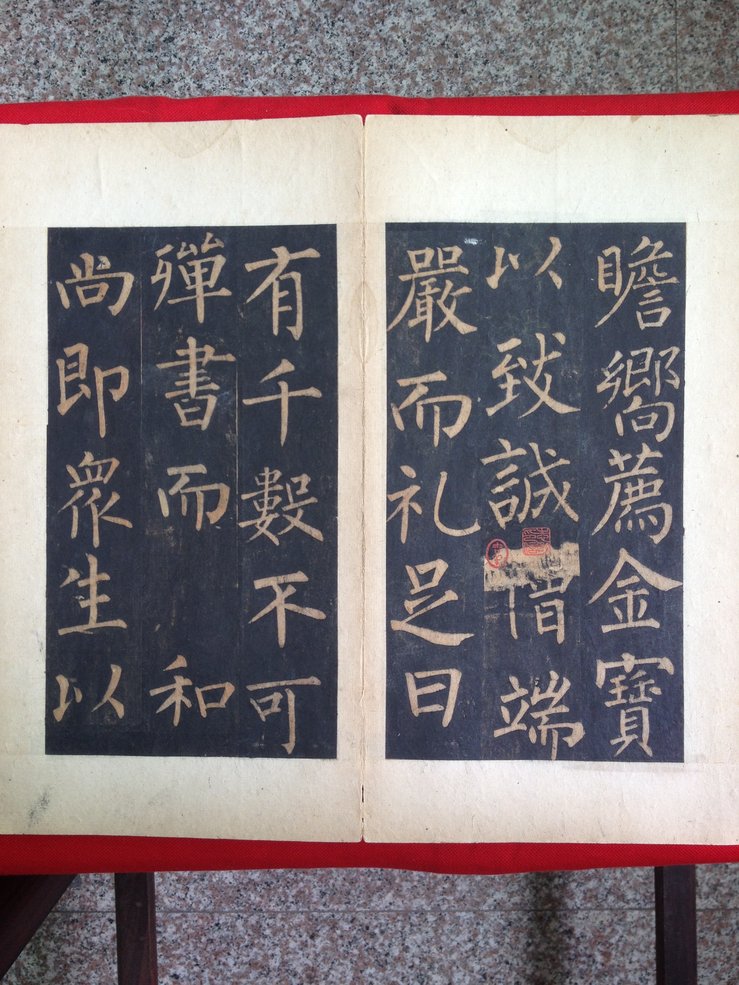 瞻嚮薦金寶
以致誠端
嚴而礼足曰
有千數不可
殫書而和
尚即衆生以